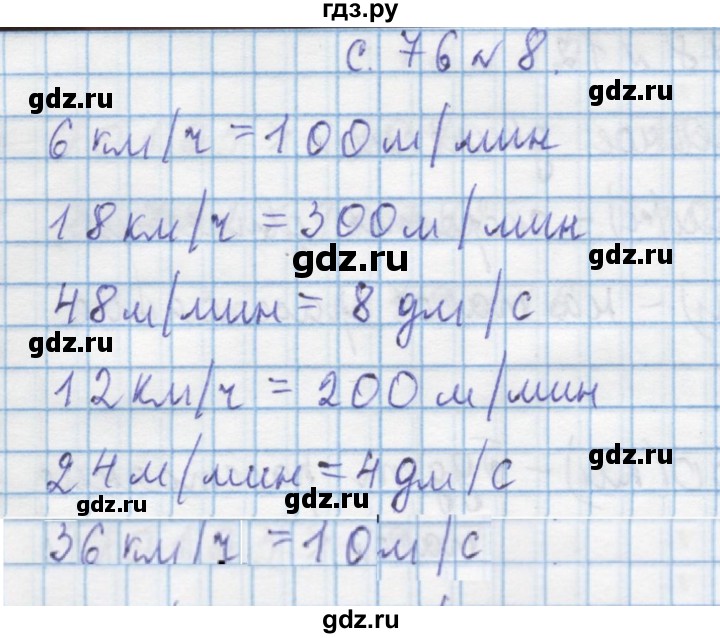 гдз.ру
с. 76 № 8.
gdz.ru gdz.ru
6 км/ч = 100 м/мин
18 км/ч = 300 м/мин
gdz.ru gdz.ru
48 м/мин = 8 дм/с
gdz.ru gdz.ru
12 км/ч = 200 м/мин
24 м/мин = 4 дм/с
gdz.ru
gdz.ru gdz.ru
36 км/ч = 10 м/с
gdz.ru